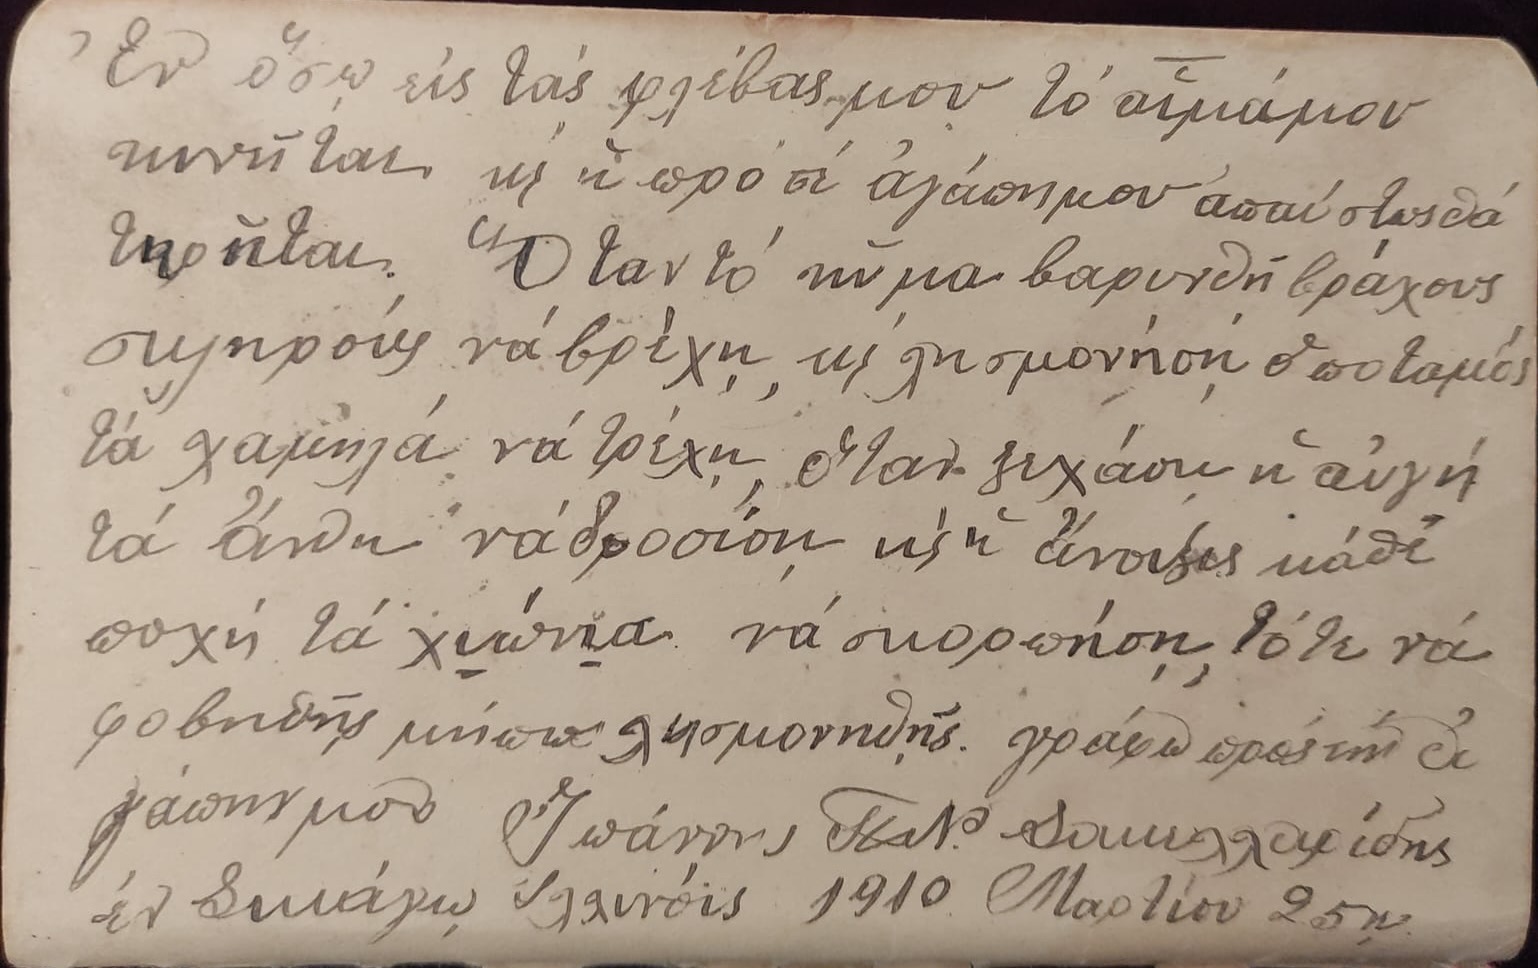 Ἐν ὅσῳ εἰς τάς φλέβας μου τό αἷμά μου
κινῆται κι ἡ πρό σέ ἀγάπη μου ἀπαύστως θά
τηρῆται. Ὅταν τό κῦμα βαρυνθῆ βράχους
σκληρούς νά βρέχῃ, κι λησμονήσῃ ὁ ποταμός
τά χαμηλά νά τρέχῃ, ὅταν ξεχάσῃ ἡ αὐγή
τά ἄνθη νά δροσίσῃ κι ἡ ἄνοιξις κάθε
ποχή τά χιώνια νά σκορπήσῃ, τότε νά
φοβηθῇς μήπως λησμονηθῇς. γράφω πρός τήν ἀ
γάπην μου Ἰωάννης Π. Ν. Σακελλαρίδης
ἐν Σικάγῳ Ἰλλινόις 1910 Μαρτίου 25ῃ